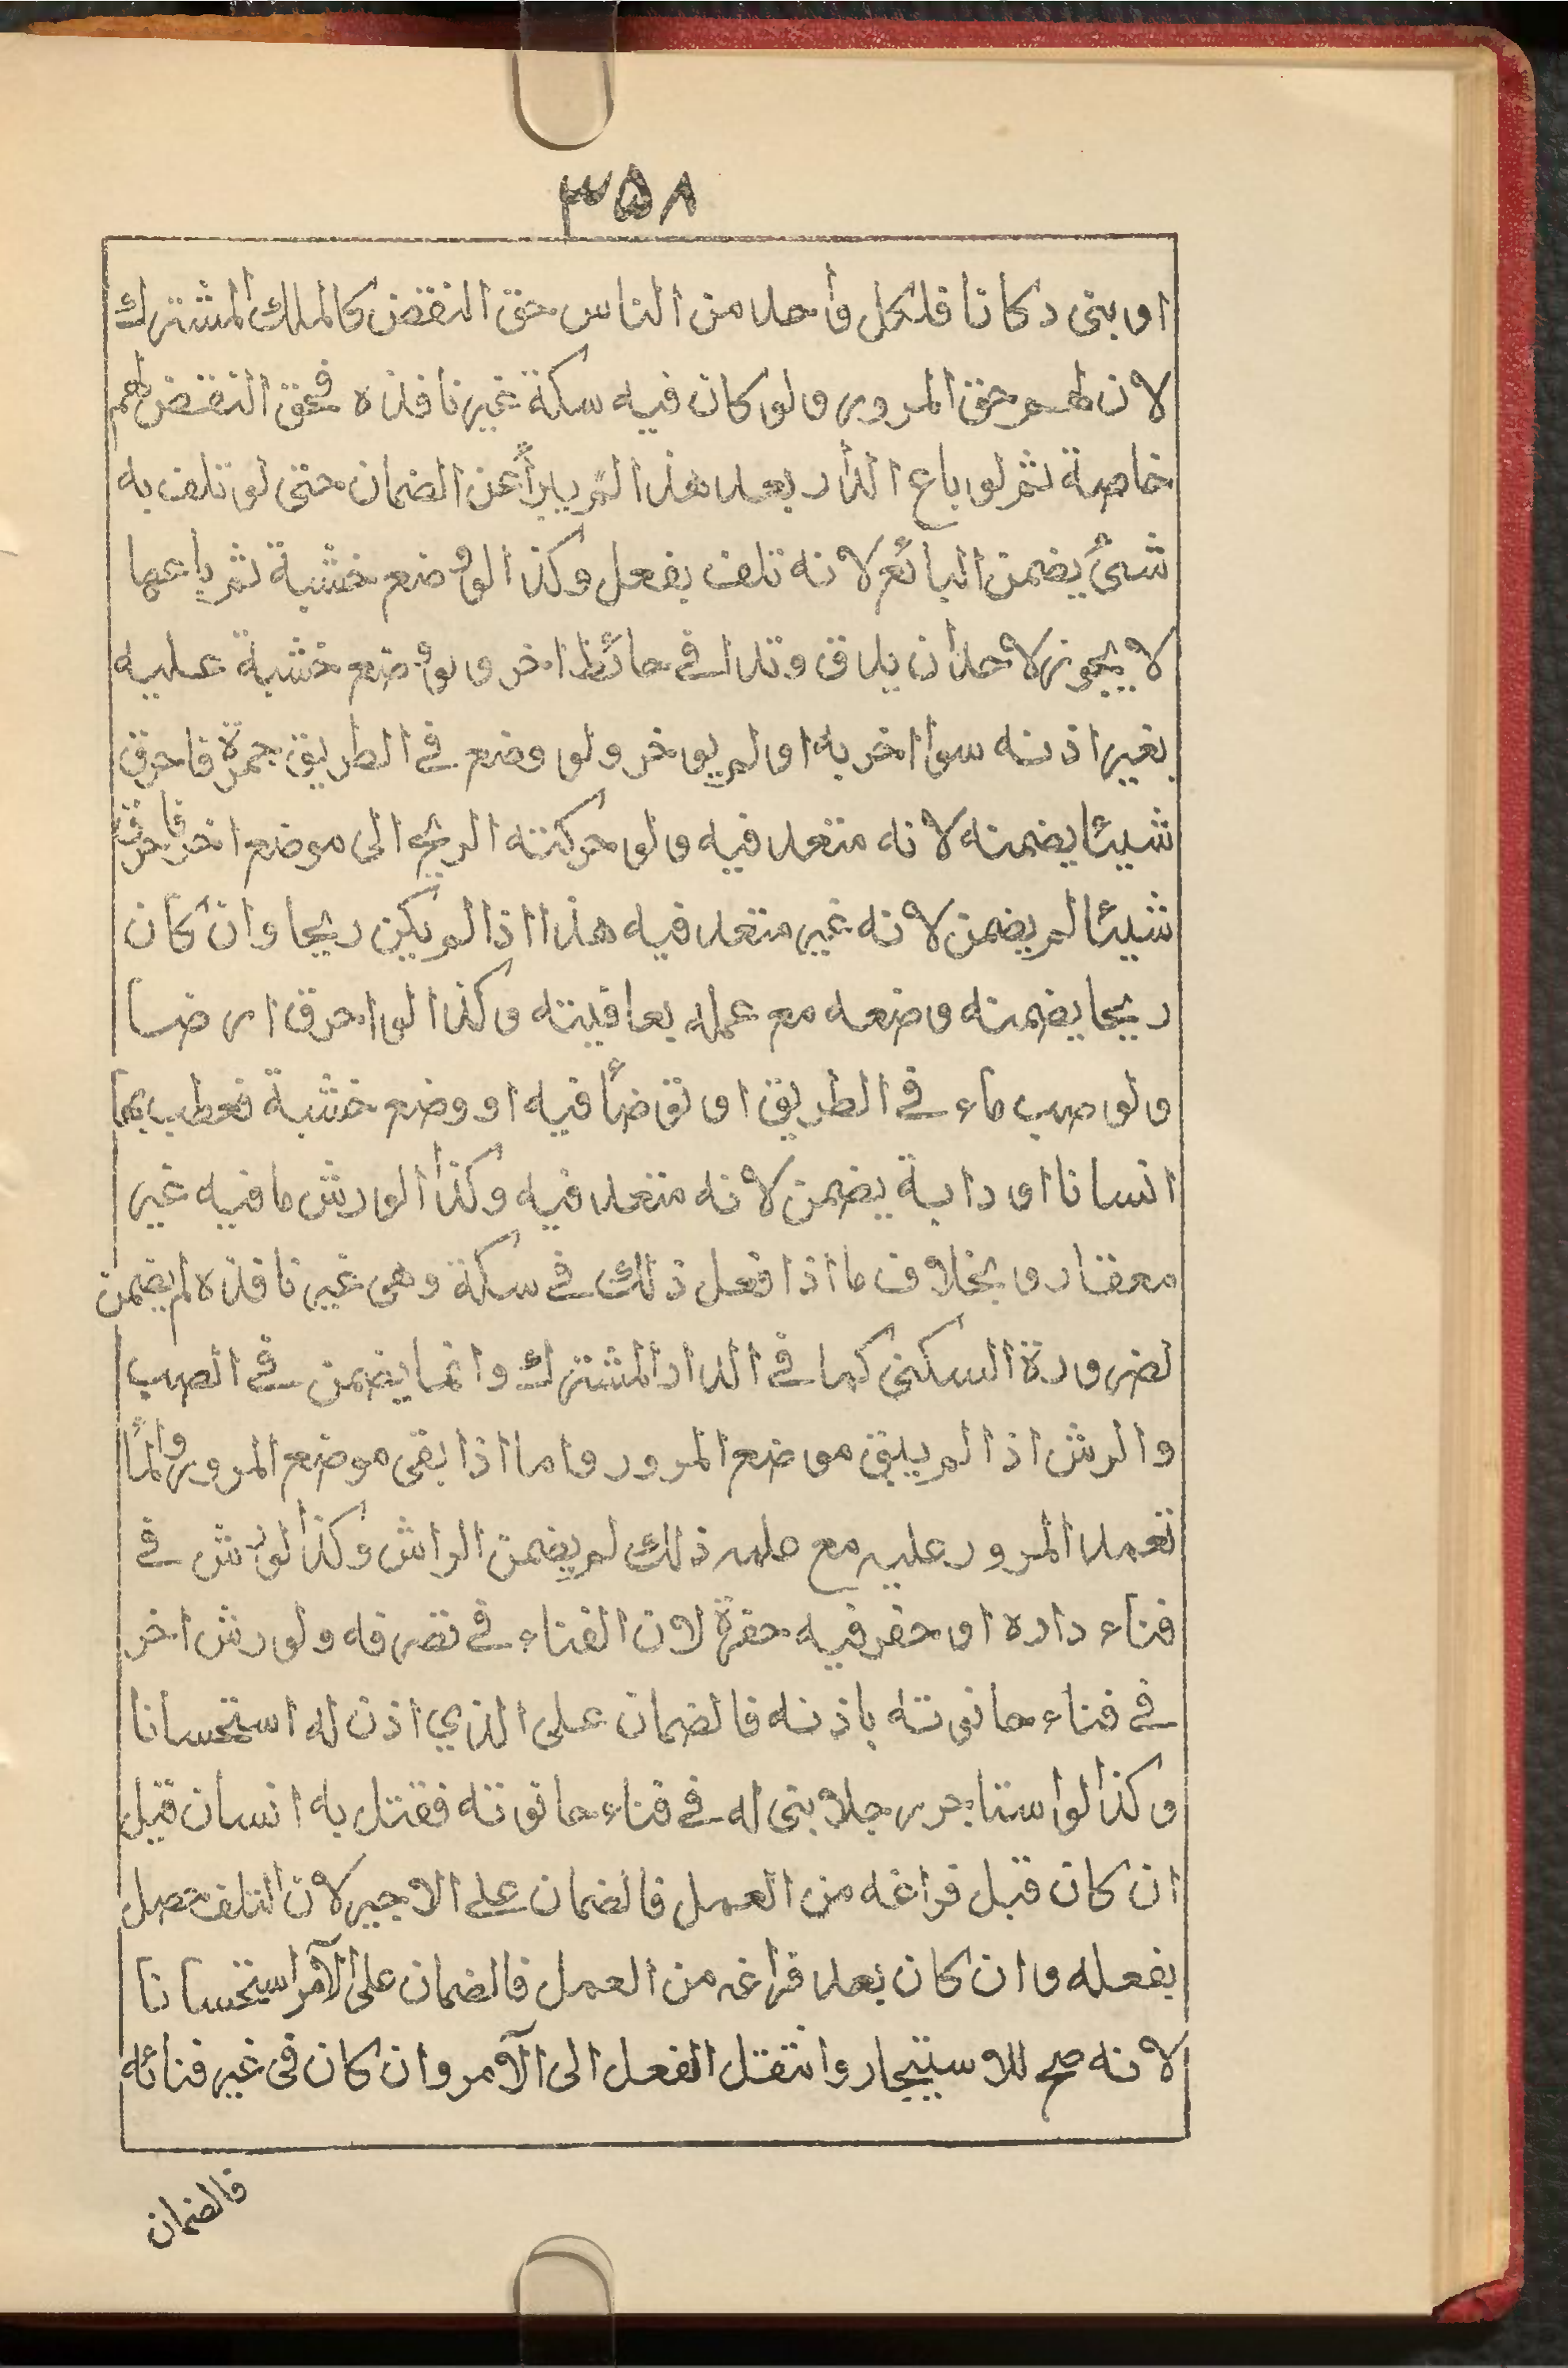 ٣٥٨
او بنى دكانا فلكل واحد من الناس حق النقض كالملك المشترك
لان لهم حق المرور ولو كان فيه سكة غير نافذه فحق النقض لهم
خاصة ثم لو باع الدار بعد هذا لم يبرأ عن الضمان حتى لو تلف به
شئ يضمن البائع لانه تلف بفعل وكذا لو وضع خشبة ثم باعها
لا يجوز لاحد ان يدق وتدا في حائط اخر ولو وضع خشبة عليه
بغير اذنه سوا اخر به او لم يوخر ولو وضع في الطريق جمرة فاحرق
شيئا يضمنه لانه متعد فيه ولو حركته الريح الى موضع اخر فاحرقت
شيئا لم يضمن لانه غير متعد فيه هذا اذا لم يكن ريحا وان كان
ريحا يضمنه وضعه مع عمله بعاقيبته وكذا لو احرق ارضا
ولو صب ماء في الطريق او توضأ فيه او وضع خشبة فعطب بها
انسانا او دابة يضمن لانه متعد فيه وكذا لو رش ما فيه غير
معقار و بخلاف ما اذا فعل ذلك في سكة وهى غير نافذه لم يضمن
لضرورة السكنى كما في الدار المشترك وانما يضمن في الصب
والرش اذا لم يبق موضع المرور واما اذا بقى موضع المرور والمأ
تعمد المرور عليه مع علمه ذلك لم يضمن الراش وكذا لو رش في
فناء داره او حفر فيه حفرة لان الفناء في تصرفه ولو رش اخر
في فناء حانوته باذنه فالضمان على الذي اذن له استحسانا
وكذا لو استاجر رجلا بنى له في فناء حانوته فقتل به انسان قبل
ان كان قبل فراغه من العمل فالضمان على الاجير لان التلف حصل
بفعله وان كان بعد فراغه من العمل فالضمان على الآمر استحسانا
لانه صح للاستيجار وانتقل الفعل الى الآمر وان كان فى غير فنائه
فالضمان